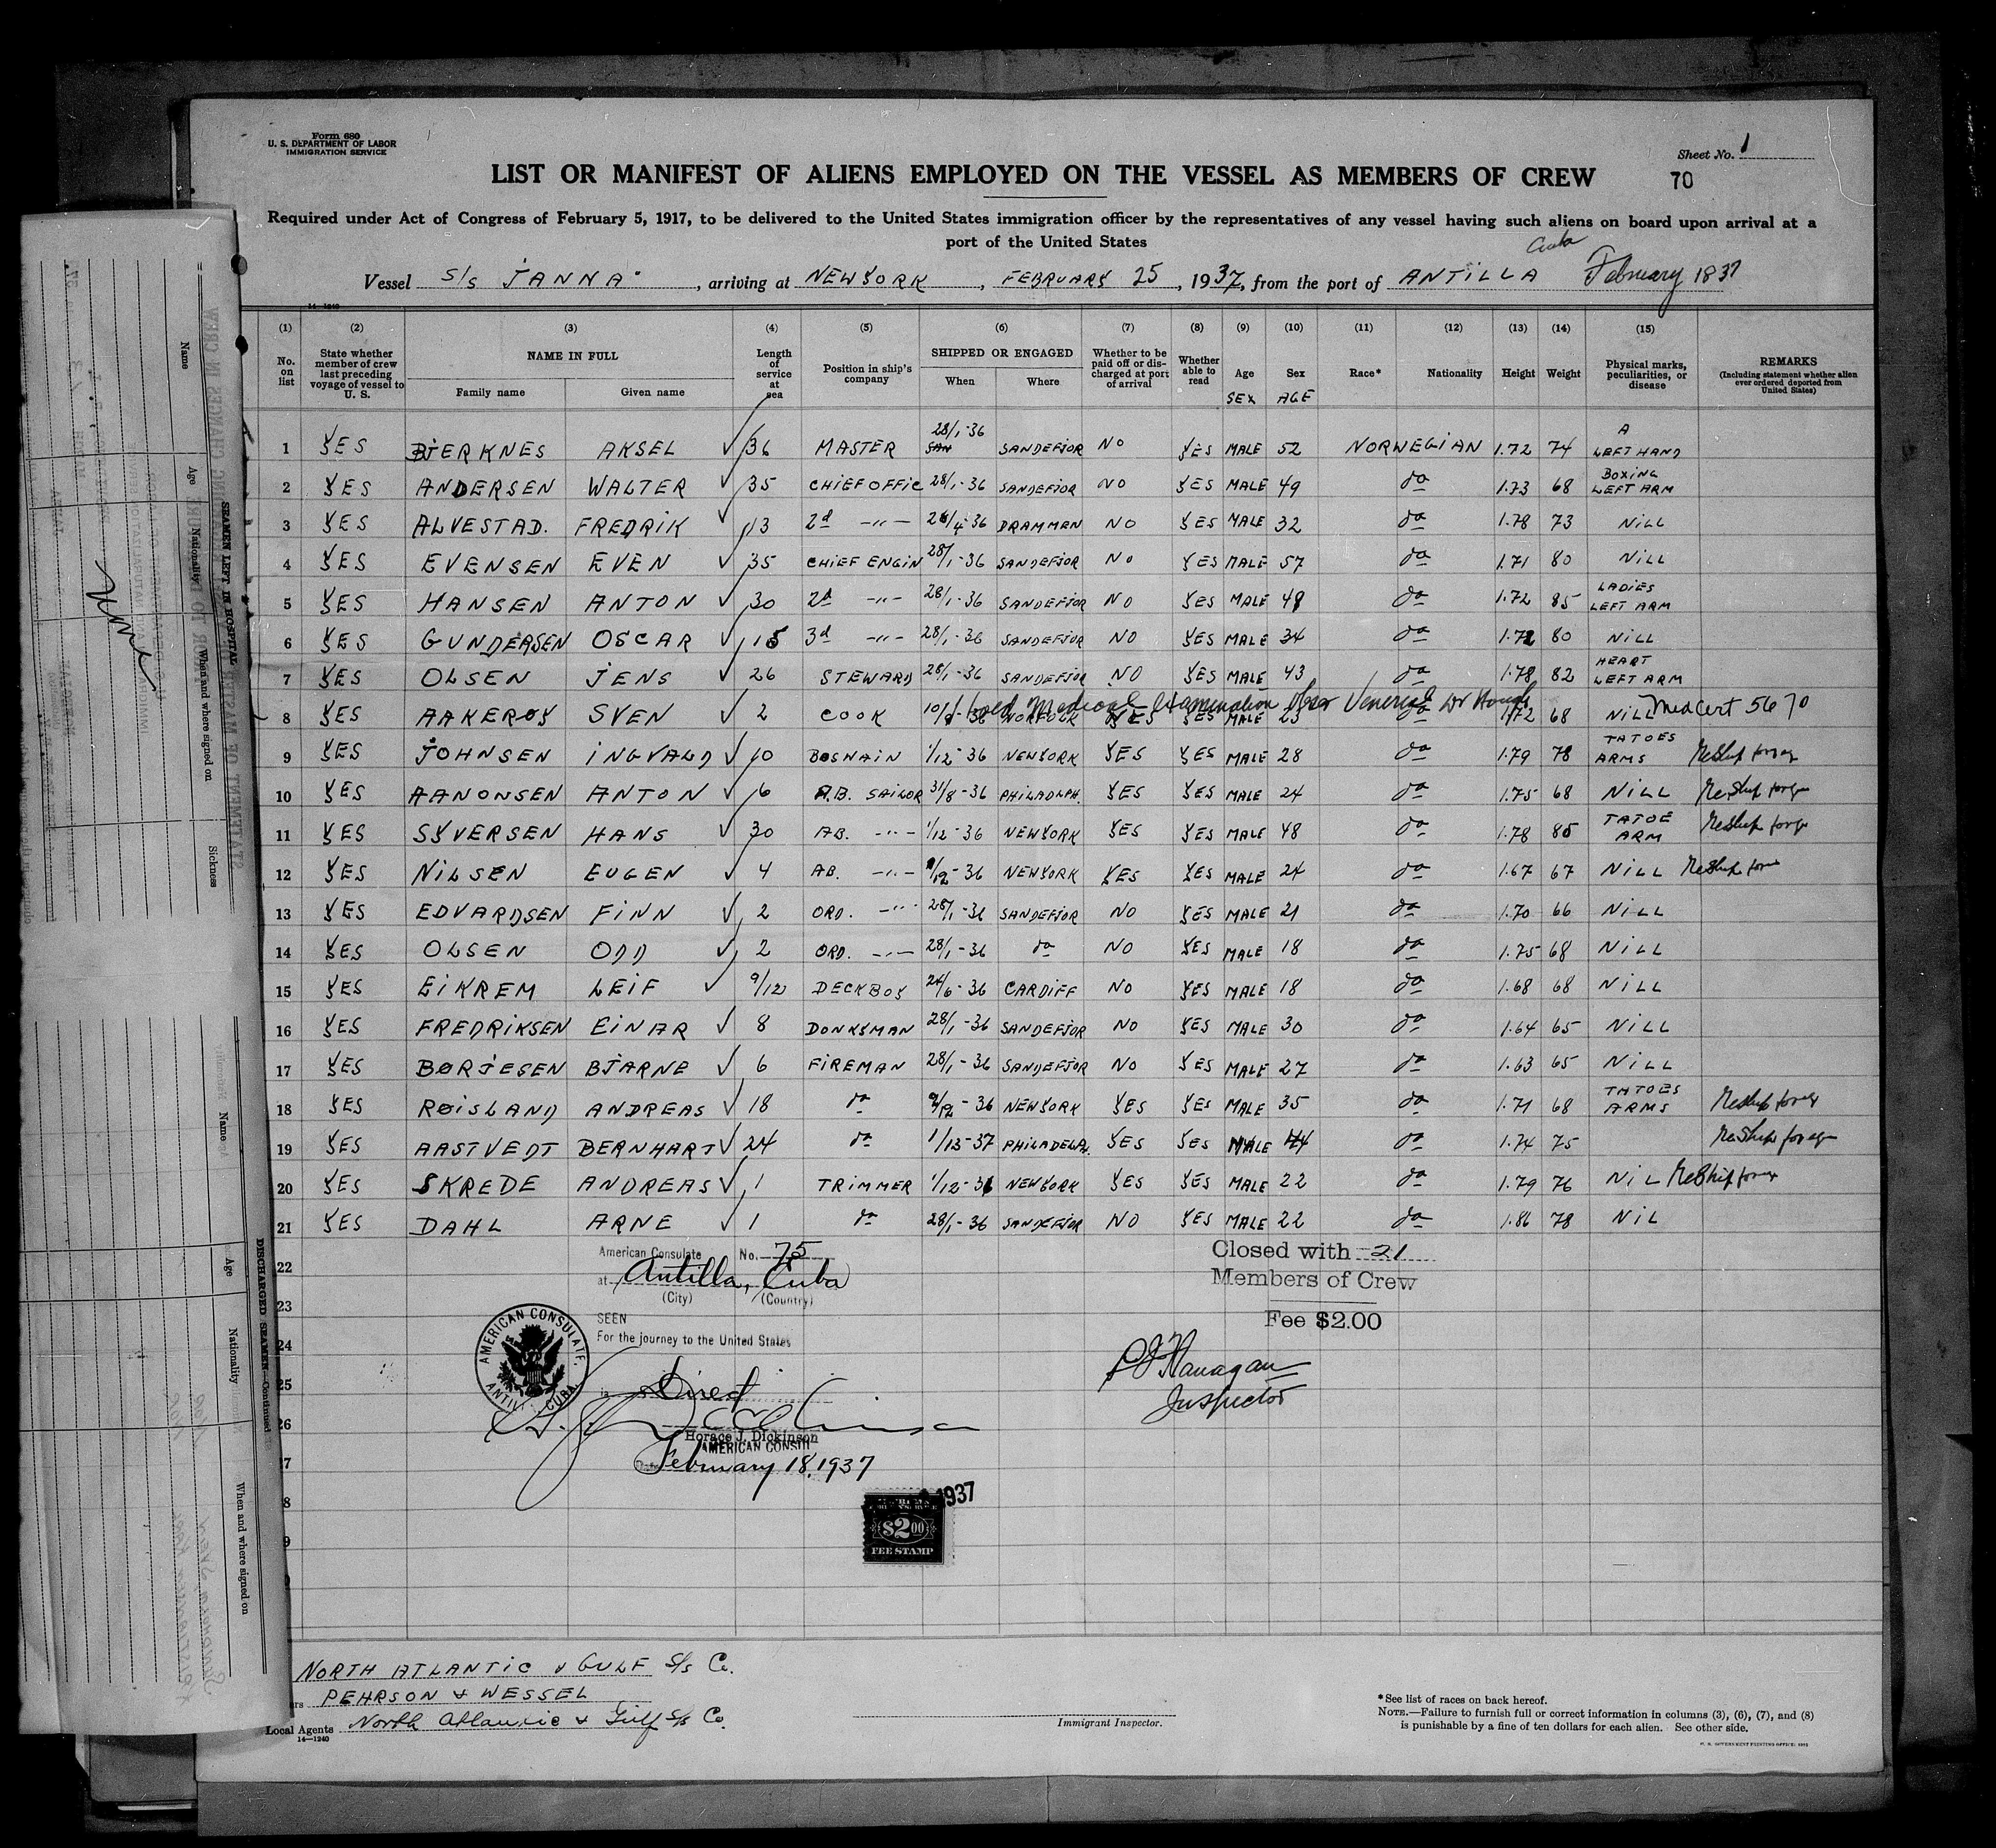 Form 680
U. S. DEPARTMENT OF LABOR
IMMIGRATION SERVICE
Sheet No. 1
70
LIST OR MANIFEST OF ALIENS EMPLOYED ON THE VESSEL AS MEMBERS OF CREW
Required under Act of Congress of February 5, 1917, to be delivered to the United States immigration officer by the representatives of any vessel having such aliens on board upon arrival at a
port of the United States
Cuba
Vessel S/S JANNA, arriving at NEW YORK, FEBRUARY 25, 1937, from the port of ANTILLA February 18 37
14—1240
(1) (2) (3) (4) (5) (6) (7) (8) (9) (10) (11) (12) (13) (14) (15)
No. on list
State whether member of crew last preceding voyage of vessel to U. S.
NAME IN FULL
Family name Given name
Length of service at sea
Position in ship's company
SHIPPED OR ENGAGED
When Where
Whether to be paid off or discharged at port of arrival
Whether able to read
Age Sex Race* Nationality Height Weight
SEX AGE
Physical marks, peculiarities, or disease
REMARKS
(Including statement whether alien ever ordered deported from United States)
1 YES BJERKNES AKSEL 36 MASTER 28/1-36 SANDEFJOR NO YES MALE 52 NORWEGIAN 1.72 74 A LEFT HAND
2 YES ANDERSEN WALTER 35 CHIEF OFFIC 28/1-36 SANDEFJOR NO YES MALE 49 do 1.73 68 BOXING LEFT ARM
3 YES ALVESTAD. FREDRIK 13 2d -"- 28/4-36 DRAMMEN NO YES MALE 32 do 1.78 73 NILL
4 YES EVENSEN EVEN 35 CHIEF ENGIN 28/1-36 SANDEFJOR NO YES MALE 57 do 1.71 80 NILL
5 YES HANSEN ANTON 30 2d -"- 28/1-36 SANDEFJOR NO YES MALE 48 do 1.72 85 LADIES LEFT ARM
6 YES GUNDERSEN OSCAR 15 3d -"- 28/1-36 SANDEFJOR NO YES MALE 34 do 1.72 80 NILL
7 YES OLSEN JENS 26 STEWARD 28/1-36 SANDEFJOR NO YES MALE 43 do 1.78 82 HEART LEFT ARM
Medical Examination Venereal
8 YES AAKEROY SVEN 2 COOK 10/8-36 NORFOLK YES YES MALE 23 do 1.72 68 NILL Med Cert 5670
9 YES JOHNSEN INGVALD 10 BOSWAIN 1/12-36 NEW YORK YES YES MALE 28 do 1.79 78 TATOES ARMS Reship
10 YES AANONSEN ANTON 6 A.B. SAILOR 31/8-36 PHILADLPH. YES YES MALE 24 do 1.75 68 NILL Reship
11 YES SYVERSEN HANS 30 AB. -"- 1/12-36 NEW YORK YES YES MALE 48 do 1.78 85 TATOE ARM Reship
12 YES NILSEN EUGEN 4 AB. -"- 1/12-36 NEW YORK YES YES MALE 24 do 1.67 67 NILL Reship
13 YES EDVARDSEN FINN 2 ORD. -"- 28/1-36 SANDEFJOR NO YES MALE 21 do 1.70 66 NILL
14 YES OLSEN ODD 2 ORD. -"- 28/1-36 do NO YES MALE 18 do 1.75 68 NILL
15 YES EIKREM LEIF 9/12 DECKBOY 24/6-36 CARDIFF NO YES MALE 18 do 1.68 68 NILL
16 YES FREDRIKSEN EINAR 8 DONKYMAN 28/1-36 SANDEFJOR NO YES MALE 30 do 1.64 65 NILL
17 YES BØRJESEN BJARNE 6 FIREMAN 28/1-36 SANDEFJOR NO YES MALE 27 do 1.63 65 NILL
18 YES RØISLAND ANDREAS 18 do 9/12-36 NEW YORK YES YES MALE 35 do 1.71 68 TATOES ARMS Reship
19 YES AASTVEDT BERNHART 24 do 1/13-37 PHILADELPH. YES YES MALE 44 do 1.74 75 Reship
20 YES SKREDE ANDREAS 1 TRIMMER 1/12-36 NEW YORK YES YES MALE 22 do 1.79 76 NIL Reship
21 YES DAHL ARNE 1 do 28/1-36 SANDEFJOR NO YES MALE 22 do 1.86 78 NIL
22
23
24
25
26
American Consulate No. 75
at Antilla, Cuba
(City) (Country)
SEEN
For the journey to the United States
Direct
AMERICAN CONSULATE. ANTILLA, CUBA.
Horace J. Dickinson
AMERICAN CONSUL
Date February 18, 1937
1937
$2.00
FEE STAMP
Closed with 21
Members of Crew
Fee $2.00
P J Flanagan
Inspector
NORTH ATLANTIC & GULF S/S Co.
PEHRSON & WESSEL
Local Agents North Atlantic & Gulf S/S Co.
14—1240
Immigrant Inspector.
*See list of races on back hereof.
NOTE.—Failure to furnish full or correct information in columns (3), (6), (7), and (8)
is punishable by a fine of ten dollars for each alien. See other side.
U. S. GOVERNMENT PRINTING OFFICE
SEAMEN LEFT IN HOSPITAL
Name Age Nationality When and where signed on Sickness
None
DISCHARGED SEAMEN—Continued
Name Age Nationality When and where signed on